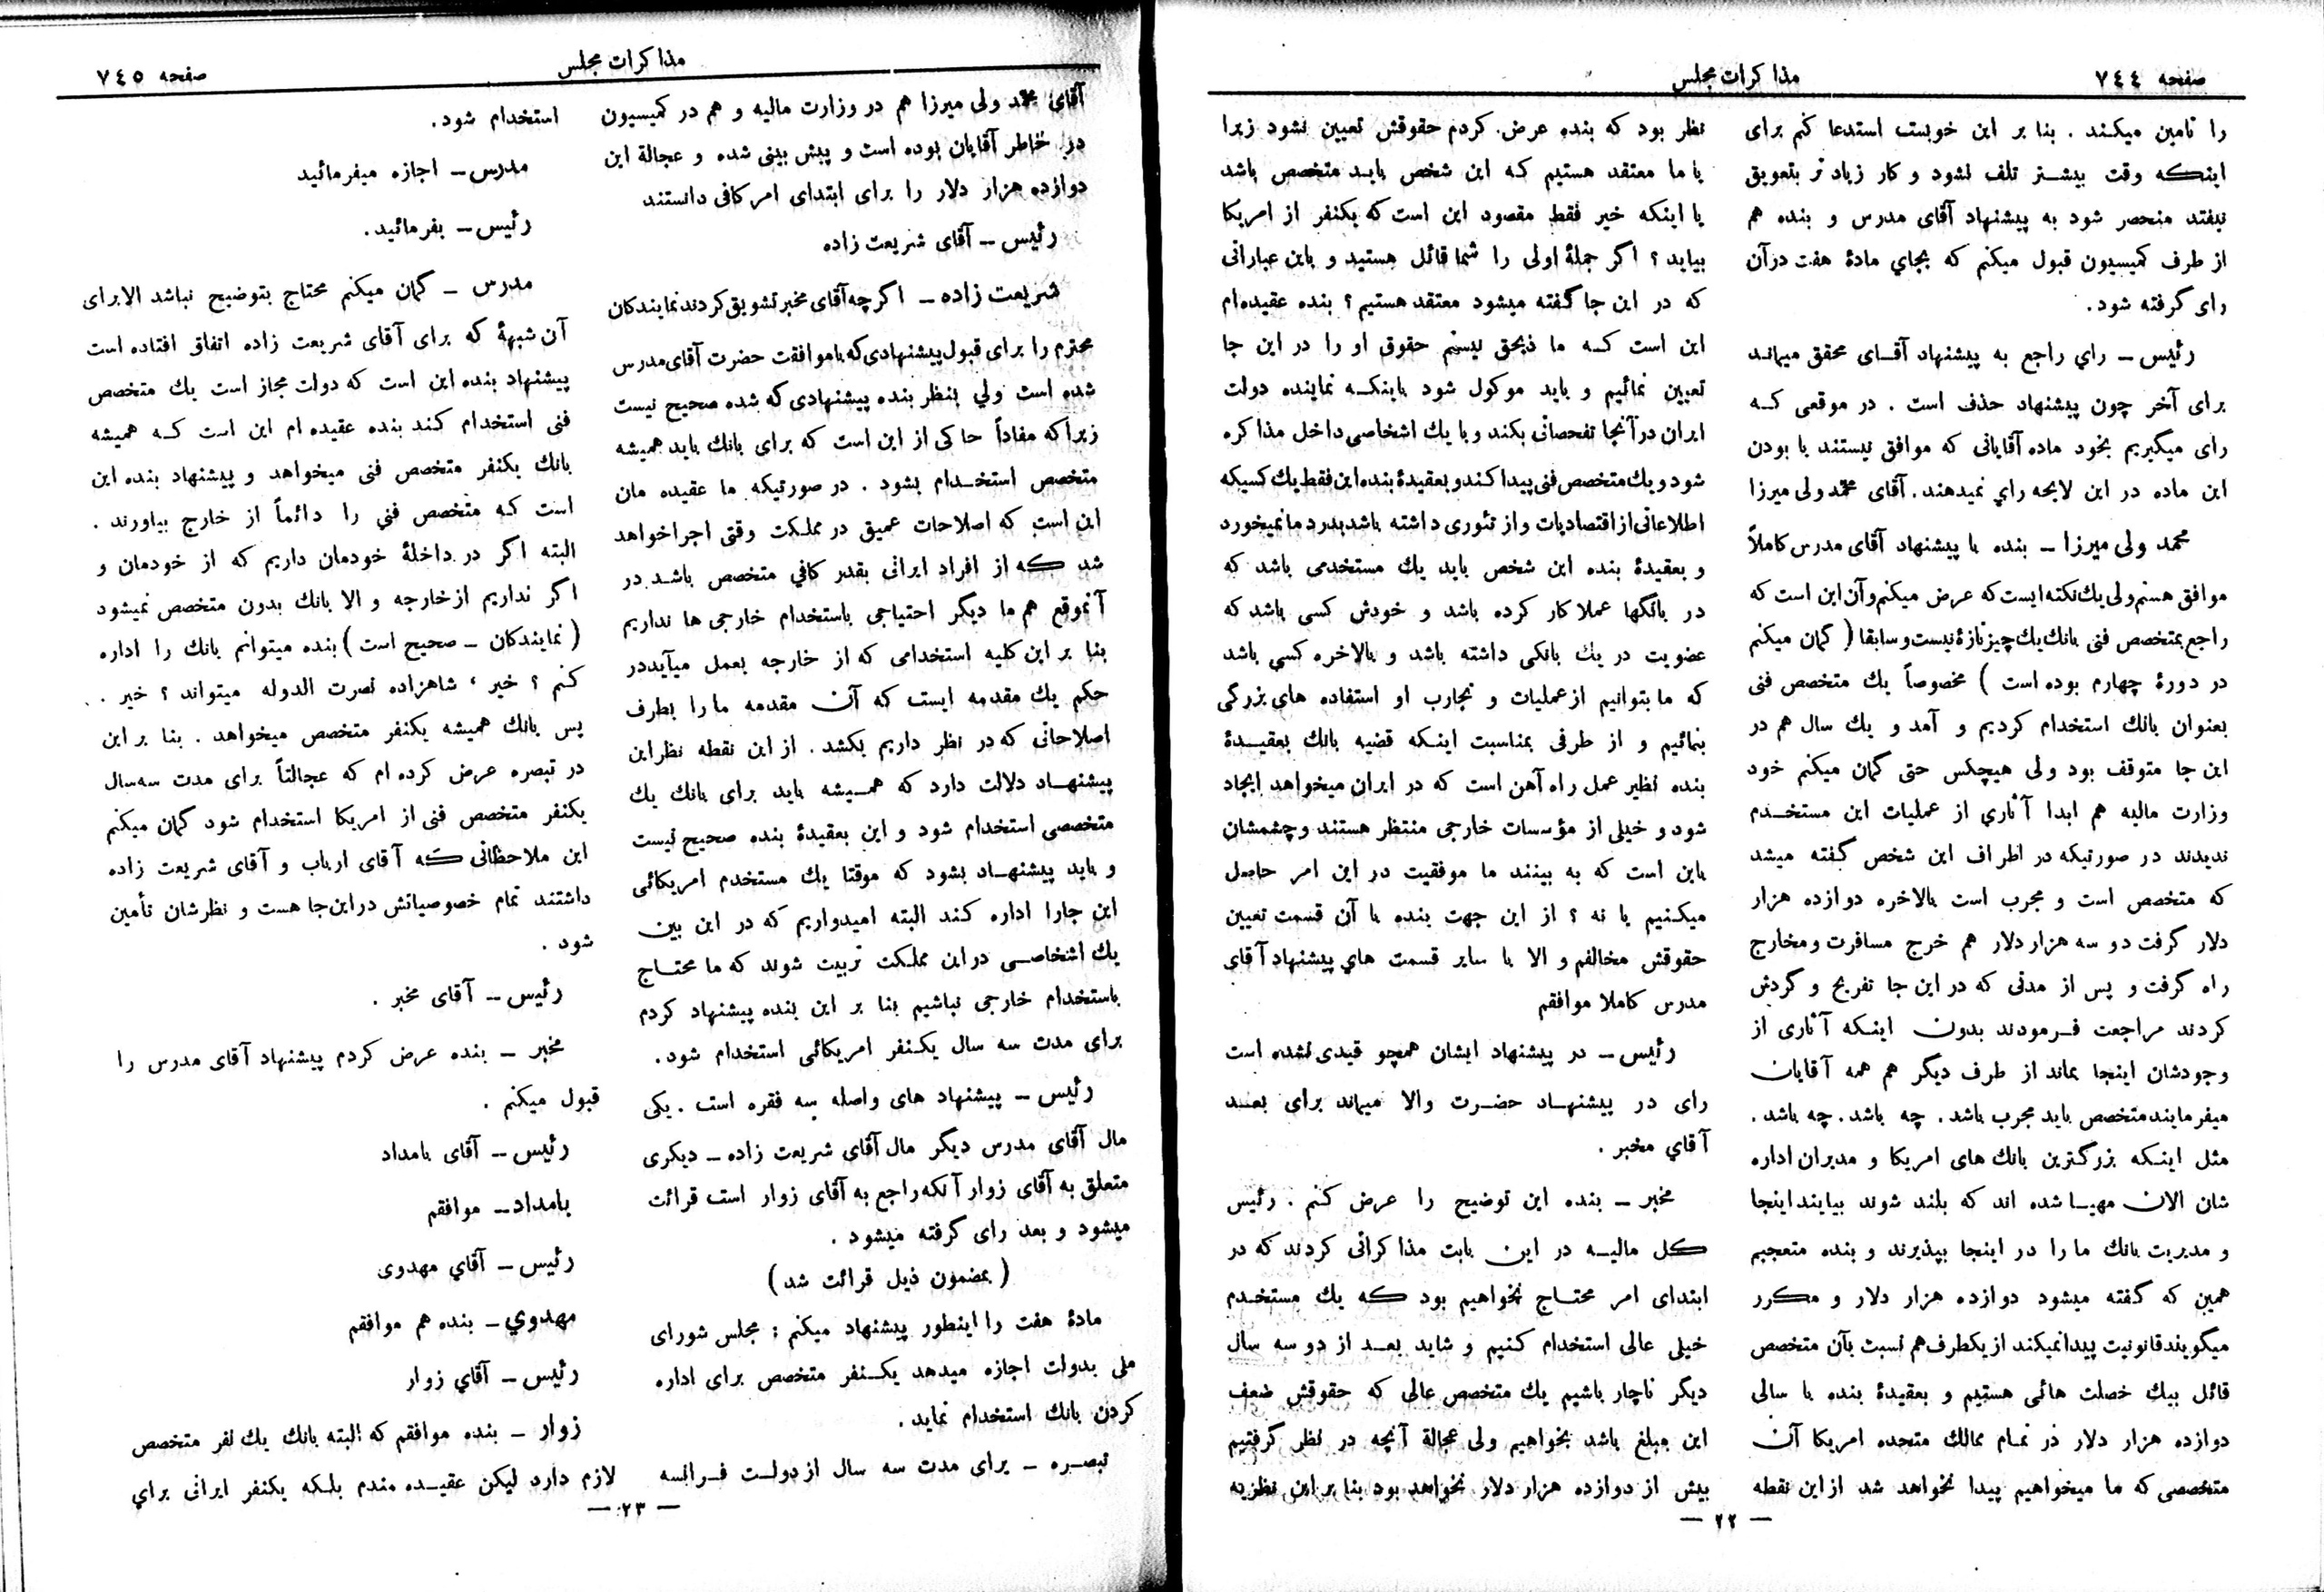 صفحه ٧٤٤
مذاکرات مجلس
را تامین میکند . بنا بر این خوبست استدعا کنم برای
اینکه وقت بیشتر تلف نشود و کار زیاد تر بتعویق
نیفتد منحصر شود به پیشنهاد آقای مدرس و بنده هم
از طرف کمیسیون قبول میکنم که بجای مادۀ هفت در آن
رای گرفته شود .
رئیس ــ رای راجع به پیشنهاد آقای محقق میماند
برای آخر چون پیشنهاد حذف است . در موقعی که
رای میگیریم بخود ماده آقایانی که موافق نیستند با بودن
این ماده در این لایحه رای نمیدهند . آقای محمد ولی میرزا
محمد ولی میرزا ــ بنده با پیشنهاد آقای مدرس کاملاً
موافق هستم ولی یك نکته ایست که عرض میکنم و آن این است که
راجع بمتخصص فنی بانك یك چیز تازۀ نیست و سابقا ( گمان میکنم
در دورۀ چهارم بوده است ) مخصوصاً یك متخصص فنی
بعنوان بانك استخدام کردیم و آمد و یك سال هم در
این جا متوقف بود ولی هیچکس حتی گمان میکنم خود
وزارت مالیه هم ابدا آثاری از عملیات این مستخدم
ندیدند در صورتیکه در اطراف این شخص گفته میشد
که متخصص است و مجرب است بالاخره دوازده هزار
دلار گرفت دو سه هزار دلار هم خرج مسافرت و مخارج
راه گرفت و پس از مدتی که در این جا تفریح و گردش
کردند مراجعت فرمودند بدون اینکه آثاری از
وجودشان اینجا بماند از طرف دیگر هم همه آقایان
میفرمایند متخصص باید مجرب باشد . چه باشد . چه باشد .
مثل اینکه بزرگترین بانك های امریکا و مدیران اداره
شان الان مهیا شده اند که بلند شوند بیایند اینجا
و مدیریت بانك ما را در اینجا بپذیرند و بنده متعجبم
همین که گفته میشود دوازده هزار دلار و مکرر
میگویند قانونیت پیدا نمیکند از یکطرف هم نسبت بآن متخصص
قائل بیك خصلت هائی هستیم و بعقیدۀ بنده با سالی
دوازده هزار دلار در تمام ممالك متحده امریکا آن
متخصصی که ما میخواهیم پیدا نخواهد شد از این نقطه
نظر بود که بنده عرض کردم حقوقش تعیین نشود زیرا
یا ما معتقد هستیم که این شخص باید متخصص باشد
یا اینکه خیر فقط مقصود این است که یکنفر از امریکا
بیاید ؟ اگر جملۀ اولی را شما قائل هستید و باین عباراتی
که در این جا گفته میشود معتقد هستیم ؟ بنده عقیده ام
این است که ما ذیحق نیستیم حقوق او را در این جا
تعیین نمائیم و باید موکول شود باینکه نماینده دولت
ایران در آنجا تفحصاتی بکند و با یك اشخاصی داخل مذاکره
شود و یك متخصص فنی پیدا کند و بعقیدۀ بنده این فقط یك کسیکه
اطلاعاتی از اقتصادیات و از تئوری داشته باشد بدرد ما نمیخورد
و بعقیدۀ بنده این شخص باید یك مستخدمی باشد که
در بانگها عملا کار کرده باشد و خودش کسی باشد که
عضویت در یك بانکی داشته باشد و بالاخره کسی باشد
که ما بتوانیم از عملیات و تجارب او استفاده های بزرگی
بنمائیم و از طرفی بمناسبت اینکه قضیه بانك بعقیدۀ
بنده نظیر عمل راه آهن است که در ایران میخواهد ایجاد
شود و خیلی از مؤسسات خارجی منتظر هستند و چشمشان
باین است که به بینند ما موفقیت در این امر حاصل
میکنیم یا نه ؟ از این جهت بنده با آن قسمت تعیین
حقوقش مخالفم و الا با سایر قسمت های پیشنهاد آقای
مدرس کاملا موافقم
رئیس ــ در پیشنهاد ایشان همچو قیدی نشده است
رای در پیشنهاد حضرت والا میماند برای بعد
آقای مخبر .
مخبر ــ بنده این توضیح را عرض کنم . رئیس
کل مالیه در این بابت مذاکراتی کردند که در
ابتدای امر محتاج نخواهیم بود که یك مستخدم
خیلی عالی استخدام کنیم و شاید بعد از دو سه سال
دیگر ناچار باشیم یك متخصص عالی که حقوقش ضعف
این مبلغ باشد بخواهیم ولی عجالة آنچه در نظر گرفتیم
بیش از دوازده هزار دلار نخواهد بود بنا بر این نظریه
ــ ٢٢ ــ
مذاکرات مجلس
صفحه ٧٤٥
آقای محمد ولی میرزا هم در وزارت مالیه و هم در کمیسیون
در خاطر آقایان بوده است و پیش بینی شده و عجالة این
دوازده هزار دلار را برای ابتدای امر کافی دانستند
رئیس ــ آقای شریعت زاده
شریعت زاده ــ اگر چه آقای مخبر تشویق کردند نمایندکان
محترم را برای قبول پیشنهادی که با موافقت حضرت آقای مدرس
شده است ولی بنظر بنده پیشنهادی که شده صحیح نیست
زیرا که مفاداً حاکی از این است که برای بانك باید همیشه
متخصص استخدام بشود . در صورتیکه ما عقیده مان
این است که اصلاحات عمیق در مملکت وقتی اجرا خواهد
شد که از افراد ایرانی بقدر کافی متخصص باشد در
آنموقع هم ما دیگر احتیاجی باستخدام خارجی ها نداریم
بنا بر این کلیه استخدامی که از خارجه بعمل میآید در
حکم یك مقدمه ایست که آن مقدمه ما را بطرف
اصلاحاتی که در نظر داریم بکشد . از این نقطه نظر این
پیشنهاد دلالت دارد که همیشه باید برای بانك یك
متخصصی استخدام شود و این بعقیدۀ بنده صحیح نیست
و باید پیشنهاد بشود که موقتا یك مستخدم امریکائی
این جارا اداره کند البته امیدواریم که در این بین
یك اشخاصی در این مملکت تربیت شوند که ما محتاج
باستخدام خارجی نباشیم بنا بر این بنده پیشنهاد کردم
برای مدت سه سال یکنفر امریکائی استخدام شود .
رئیس ــ پیشنهاد های واصله سه فقره است . یکی
مال آقای مدرس دیگر مال آقای شریعت زاده ــ دیکری
متعلق به آقای زوار آنکه راجع به آقای زوار است قرائت
میشود و بعد رای گرفته میشود .
( بمضمون ذیل قرائت شد )
مادۀ هفت را اینطور پیشنهاد میکنم : مجلس شورای
ملی بدولت اجازه میدهد یکنفر متخصص برای اداره
کردن بانك استخدام نماید .
تبصره ــ برای مدت سه سال از دولت فرانسه
استخدام شود .
مدرس ــ اجازه میفرمائید
رئیس ــ بفرمائید .
مدرس ــ گمان میکنم محتاج بتوضیح نباشد الا برای
آن شبهۀ که برای آقای شریعت زاده اتفاق افتاده است
پیشنهاد بنده این است که دولت مجاز است یك متخصص
فنی استخدام کند بنده عقیده ام این است که همیشه
بانك یکنفر متخصص فنی میخواهد و پیشنهاد بنده این
است که متخصص فنی را دائماً از خارج بیاورند .
البته اگر در داخلۀ خودمان داریم که از خودمان و
اگر نداریم از خارجه و الا بانك بدون متخصص نمیشود
( نمایندکان ــ صحیح است ) بنده میتوانم بانك را اداره
کنم ؟ خیر ، شاهزاده نصرت الدوله میتواند ؟ خیر .
پس بانك همیشه یکنفر متخصص میخواهد . بنا بر این
در تبصره عرض کرده ام که عجالتاً برای مدت سه سال
یکنفر متخصص فنی از امریکا استخدام شود گمان میکنم
این ملاحظاتی که آقای ارباب و آقای شریعت زاده
داشتند تمام خصوصیاتش در این جا هست و نظرشان تأمین
شود .
رئیس ــ آقای مخبر .
مخبر ــ بنده عرض کردم پیشنهاد آقای مدرس را
قبول میکنم .
رئیس ــ آقای بامداد
بامداد ــ موافقم
رئیس ــ آقای مهدوی
مهدوی ــ بنده هم موافقم
رئیس ــ آقای زوار
زوار ــ بنده موافقم که البته بانك یك نفر متخصص
لازم دارد لیکن عقیده مندم بلکه یکنفر ایرانی برای
ــ ٢٣ ــ